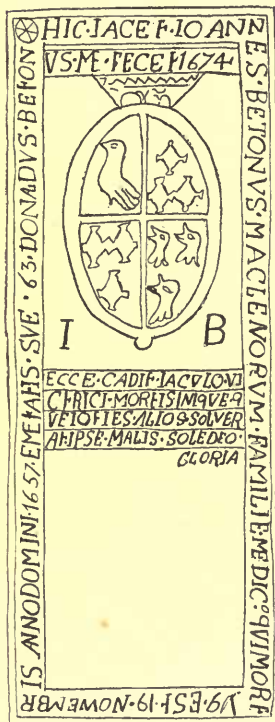 HIC·IACET·IOANN
ES·BETONVS·MACLENORVM·FAMILIE·MEDIC⁹·QVI MORT
V9·EST·19·NOWEMBR
IS ANNODOMINI·1657·EMETATIS·SVE·63·DONADVS·BETON
VS·ME·FECET 1674
I B
ECCE·CADIT·IACVLO·VI
CTRICI·MORTIS INIQVE·9
VETOTIES·ALIO9·SOLVER
AT·IPSE·MALIS·SOLEDEO·
GLORIA